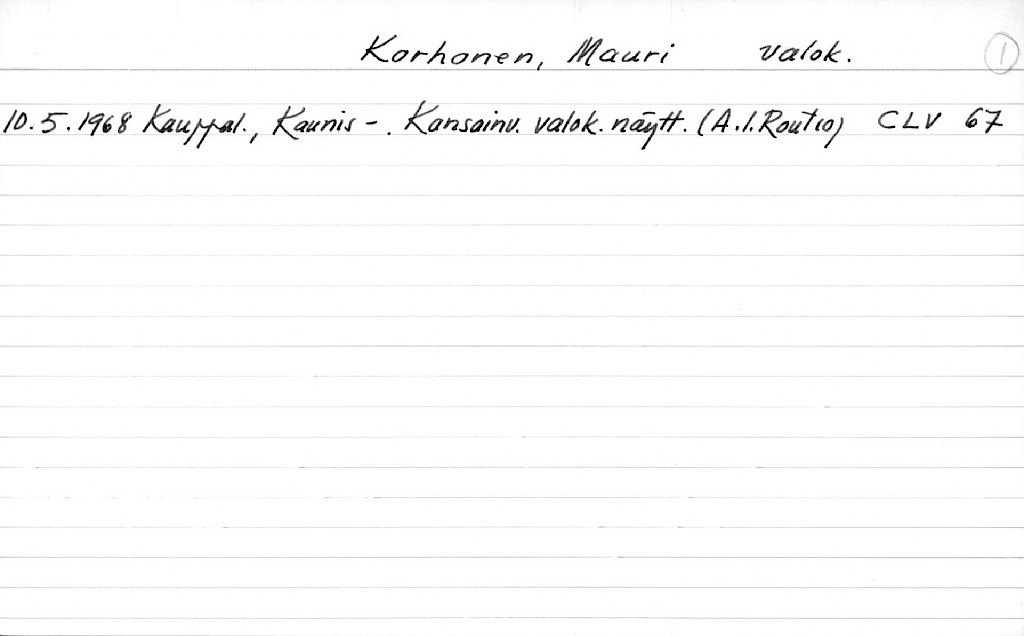 Korhonen, Mauri valok. 1
10.5.1968 Kauppal., Kaunis -. Kansainv. valok. näytt. (A.I.Routio) CLV 67